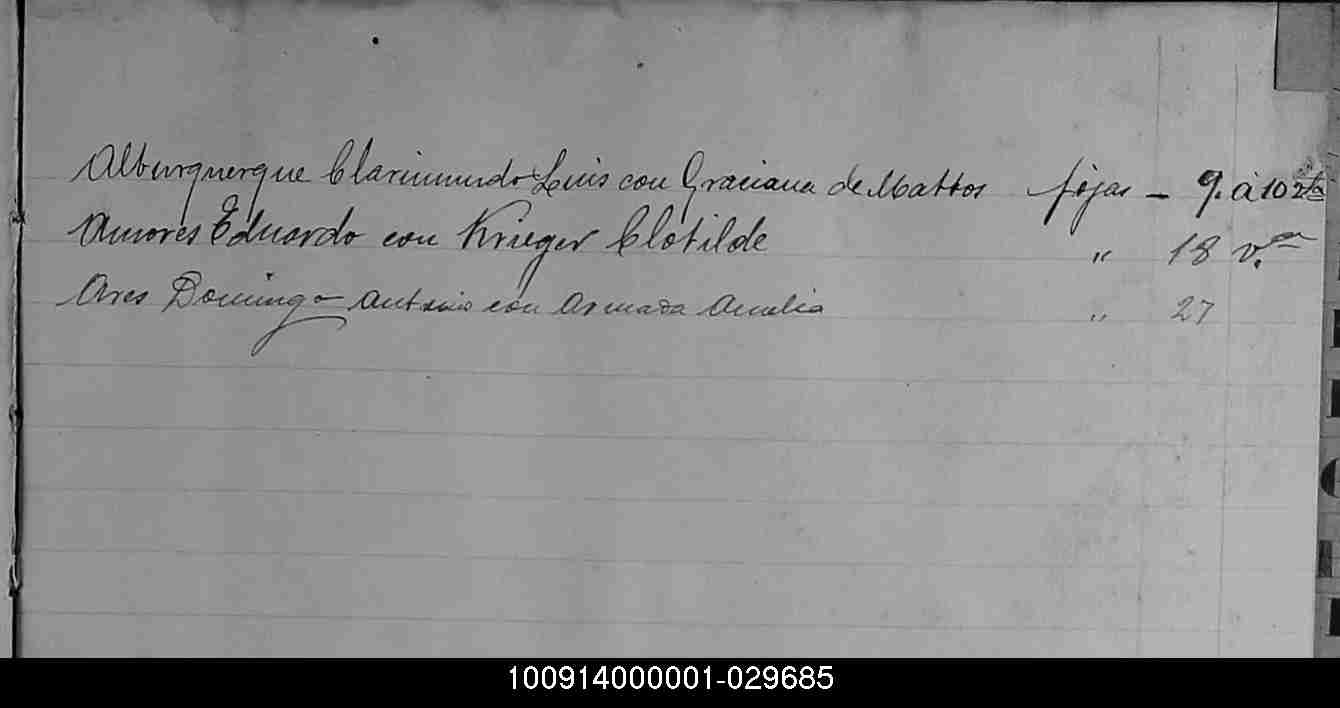 Alburquerque Clarimundo Luis con Graciana de Mattos fojas – 9. á 10 vta
Amores Eduardo con Krieger Clotilde " 18 v.ta
Ares Domingo Antonio con Armada Amelia " 27
100914000001-029685